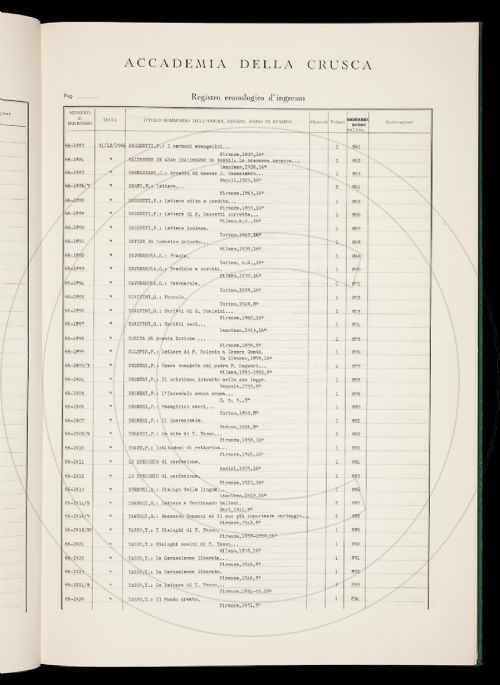 ACCADEMIA DELLA CRUSCA
Pag.
Registro cronologico d'ingresso
NUMERO di INGRESSO DATA TITOLO SOMMARIO DELL'OPERA, LUOGO, ANNO DI STAMPA Opuscoli Volumi Osservazioni
66-1883 31/12/1966 SACCHETTI,F.: I sermoni evangelici... 1 861
Firenze,1857,16°
66-1884 " 1 862
Lanciano,1926,16°
66-1885 " SANNAZZARO,J.: Arcadia di messer J. Sannazaro... 1 863
Napoli,1925,16°
66-1886/7 " SARPI,P.: Lettere... 2 864
Firenze,1863,16°
66-1888 " SASSETTI,F.: Lettere edite e inedite... 1 865
Firenze,1855,16°
66-1889 " SASSETTI,F.: Lettere di F. Sassetti corrette... 1 866
Milano,s.d.,16°
66-1890 " SASSETTI,F.: Lettere indiane. 1 867
Torino,16°
66-1891 " SATIRE di Ludovico Ariosto... 1 868
Milano,16°
66-1892 " SAVONAROLA,G.: Poesie. 1 869
Torino, s.d.,16°
66-1893 " SAVONAROLA,G.: Prediche e scritti. 1 870
Milano,1930,16°
66-1894 " SAVONAROLA,G.: Savonarola. 1 871
Torino,1928,16°
66-1895 " SCALVINI,G.: Foscolo. 1 872
Torino,1948,8°
66-1896 " SCALVINI,G.: Scritti di G. Scalvini... 1 873
Firenze,1860,16°
66-1897 " SCALVINI,G.: Scritti vari... 1 874
Lanciano,1913,16°
66-1898 " SCELTA di poesie liriche ... 1 875
Firenze,1839,8°
66-1899 " SCLOPIS,F.: Lettere di F. Sclopis a Cesare Cantù. 1 876
66-1900/3 " SEGNERI,P.: Opere emendate dal padre P. Segneri... 4 877
Milano,1853-1855,8°
66-1904 " SEGNERI,P.: Il cristiano istruito nella sua legge. 1 878
Venezia,1773,8°
66-1905 " SEGNERI,P.: L'Incredulo senza scusa... 1 879
66-1906 " SEGNERI,P.: Panegirici sacri... 1 880
Torino,8°
66-1907 " SEGNERI,P.: Il Quaresimale. 1 881
Padova,1826,8°
66-1908/9 " SERASSI,P.: La vita di T. Tasso... 2 882
Firenze,1858,16°
66-1910 " 1 883
Firenze,16°
66-1911 " LO SPECCHIO di perfezione. 1 884
Assisi,1905,16°
66-1912 " LO SPECCHIO di perfezione. 1 885
Firenze,1923,16°
66-1913 " SPERONI,S.: Dialogo delle lingue... 1 886
Lanciano,1912,16°
66-1914/5 " TANUCCI,B.: Lettere a Ferdinando Galiani. 2 887
Bari,1914,8°
66-1916/7 " TANUCCI,B.: Bernardo Tanucci ed il suo più importante carteggio... 2 888
Firenze,1942,8°
66-1918/20 " TASSO,T.: I Dialoghi di T. Tasso... 3 889
Firenze,1858-1859,16°
66-1921 " TASSO,T.: Dialoghi scelti di T. Tasso... 1 890
Milano,1878,16°
66-1922 " TASSO,T.: La Gerusalemme liberata... 1 891
Firenze,1946,8°
66-1923 " TASSO,T.: La Gerusalemme liberata. 1 892
Firenze,1946,8°
66-1924/8 " TASSO,T.: Le lettere di T. Tasso... 5 893
Firenze,1854-55,16°
66-1929 " TASSO,T.: Il Mondo creato. 1 894
Firenze,1951,8°